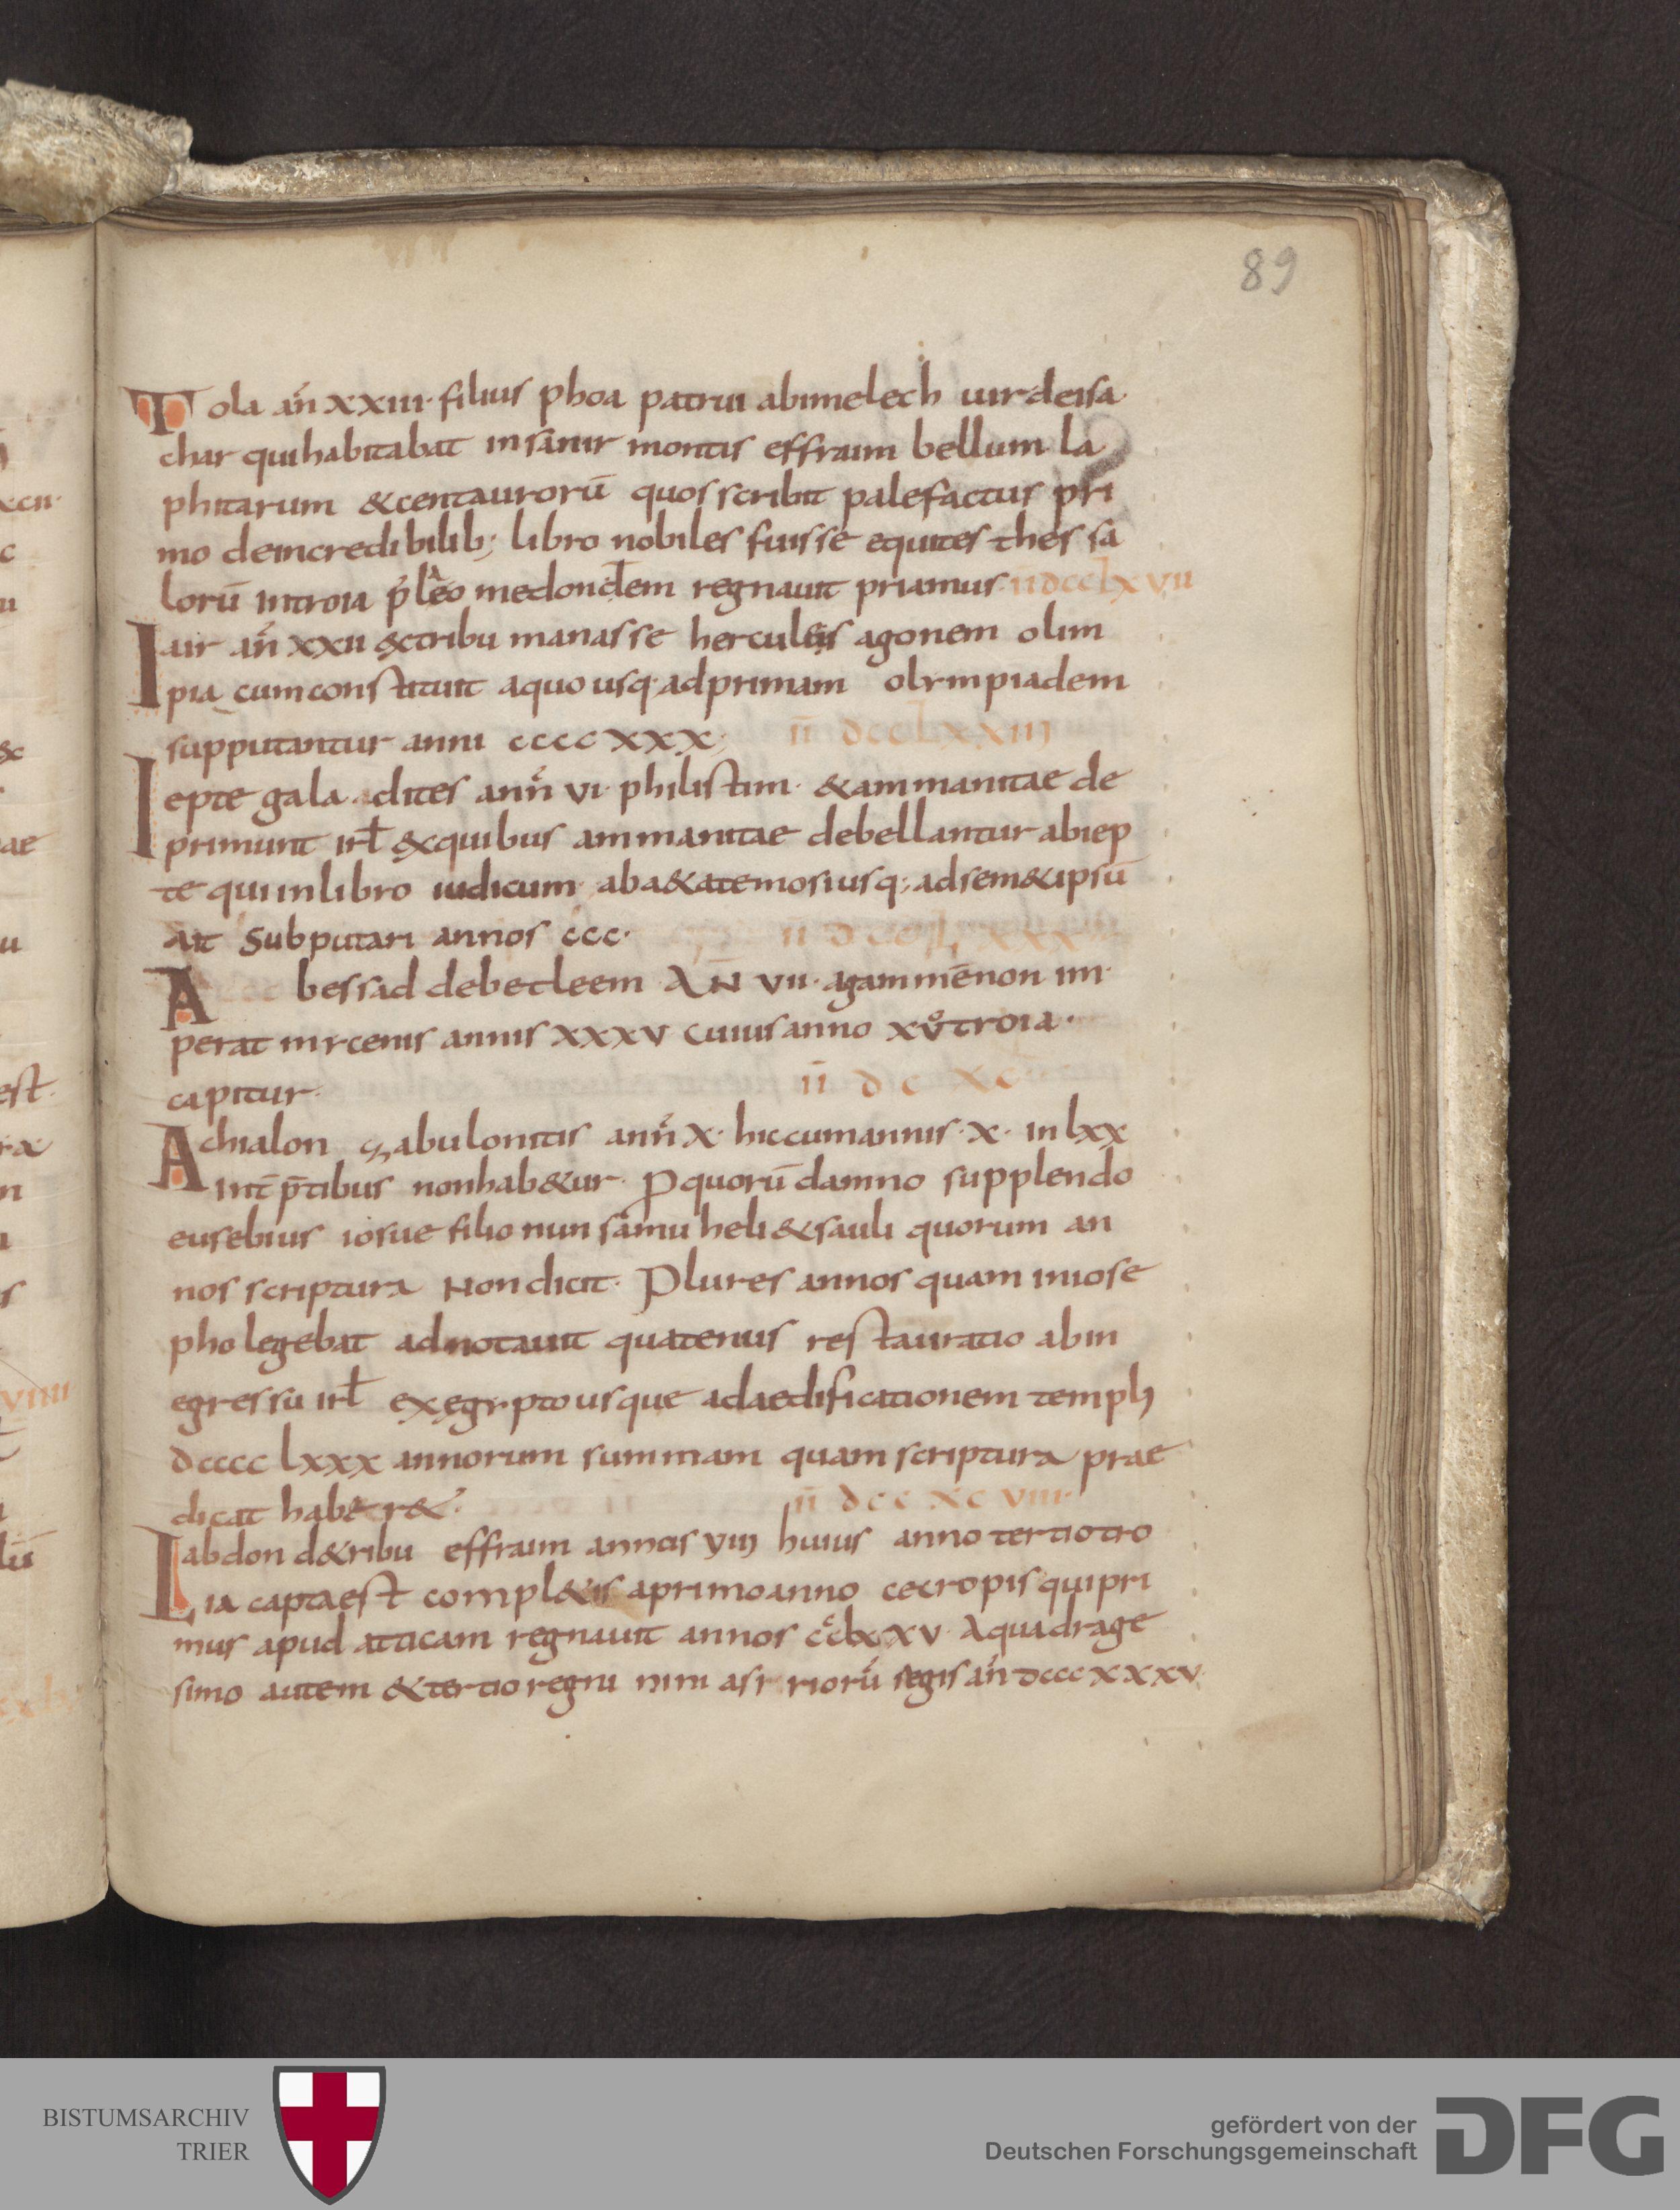 89
Tola an̄ xxiii· filius phoa patrui abimelech uir deisa
char qui habitabat insanir montis effraim bellum la
phitarum & centaurorū quos scribit palefactus pri
mo deincredibilib; libro nobiles fuisse equites thessa
lorū introia p̄ leo medonctem regnauit priamus· iidcclxvii
Iair an̄ xxii &tribu manasse herculeis agonem olim
pia cumconstituit aquo usq· adprimam olympiadem
supputantur anni ccccxxx; ii dcclxxiii
Iepte galadites ann̄ vi· philistim· & ammanitae de
primunt irl̄ &quibus ammanitae debellantur abiep
te qui inlibro iudicum aba&atemosi usq; adsem&ipsū
ait Subputari annos ccc· ii dcclxxx
Abessad debetleem AN̄ vii· agammēnon im
perat mycenis annis xxxv cuius anno xv̊ troia·
capitur· ii dc xc
Achialon zabulonitis ann̄ x· hiccumannis·x· in lxx
int̄ p̄tibus nonhab&ur· Pquorū damno supplendo
eusebius iosue filio nun samuheli & sauli quorum an
nos scriptura Non dicit· Plures annos quam iniose
pho legebat adnotauit quatenus restauratio abin
egressu irl̄ exęgypto usque adaedificationem templi
dcccc lxxx annorum summam quam scriptura prae
dicat hab&r&· ii dcc xcviii·
Labdon d&ribu effraim annis viii huius anno tertio tro
ia capta est compl&is aprimoanno cecropis qui pri
mus apud atticam regnauit annos ccclxxv Aquadrage
simo autem & tertio regni nini asyriorū regis an̄ dcccxxxv
BISTUMSARCHIV
TRIER
gefördert von der
Deutschen Forschungsgemeinschaft
DFG